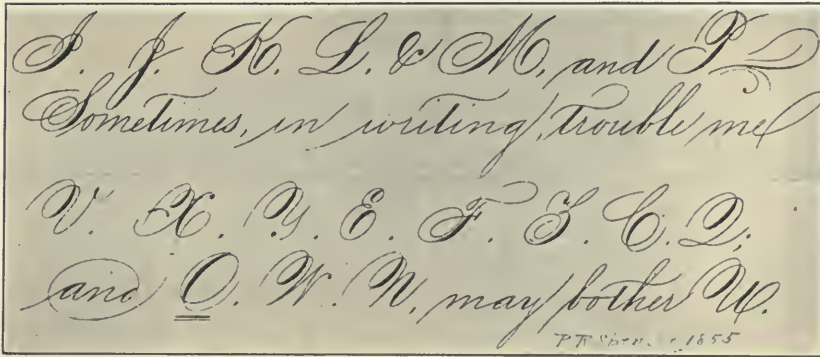 I. J. K. L. & M, and P
Sometimes, in writing, trouble me
V. X. Y. E. F. C. Q,
and O. W. N, may bother U.
P R Spencer, 1855